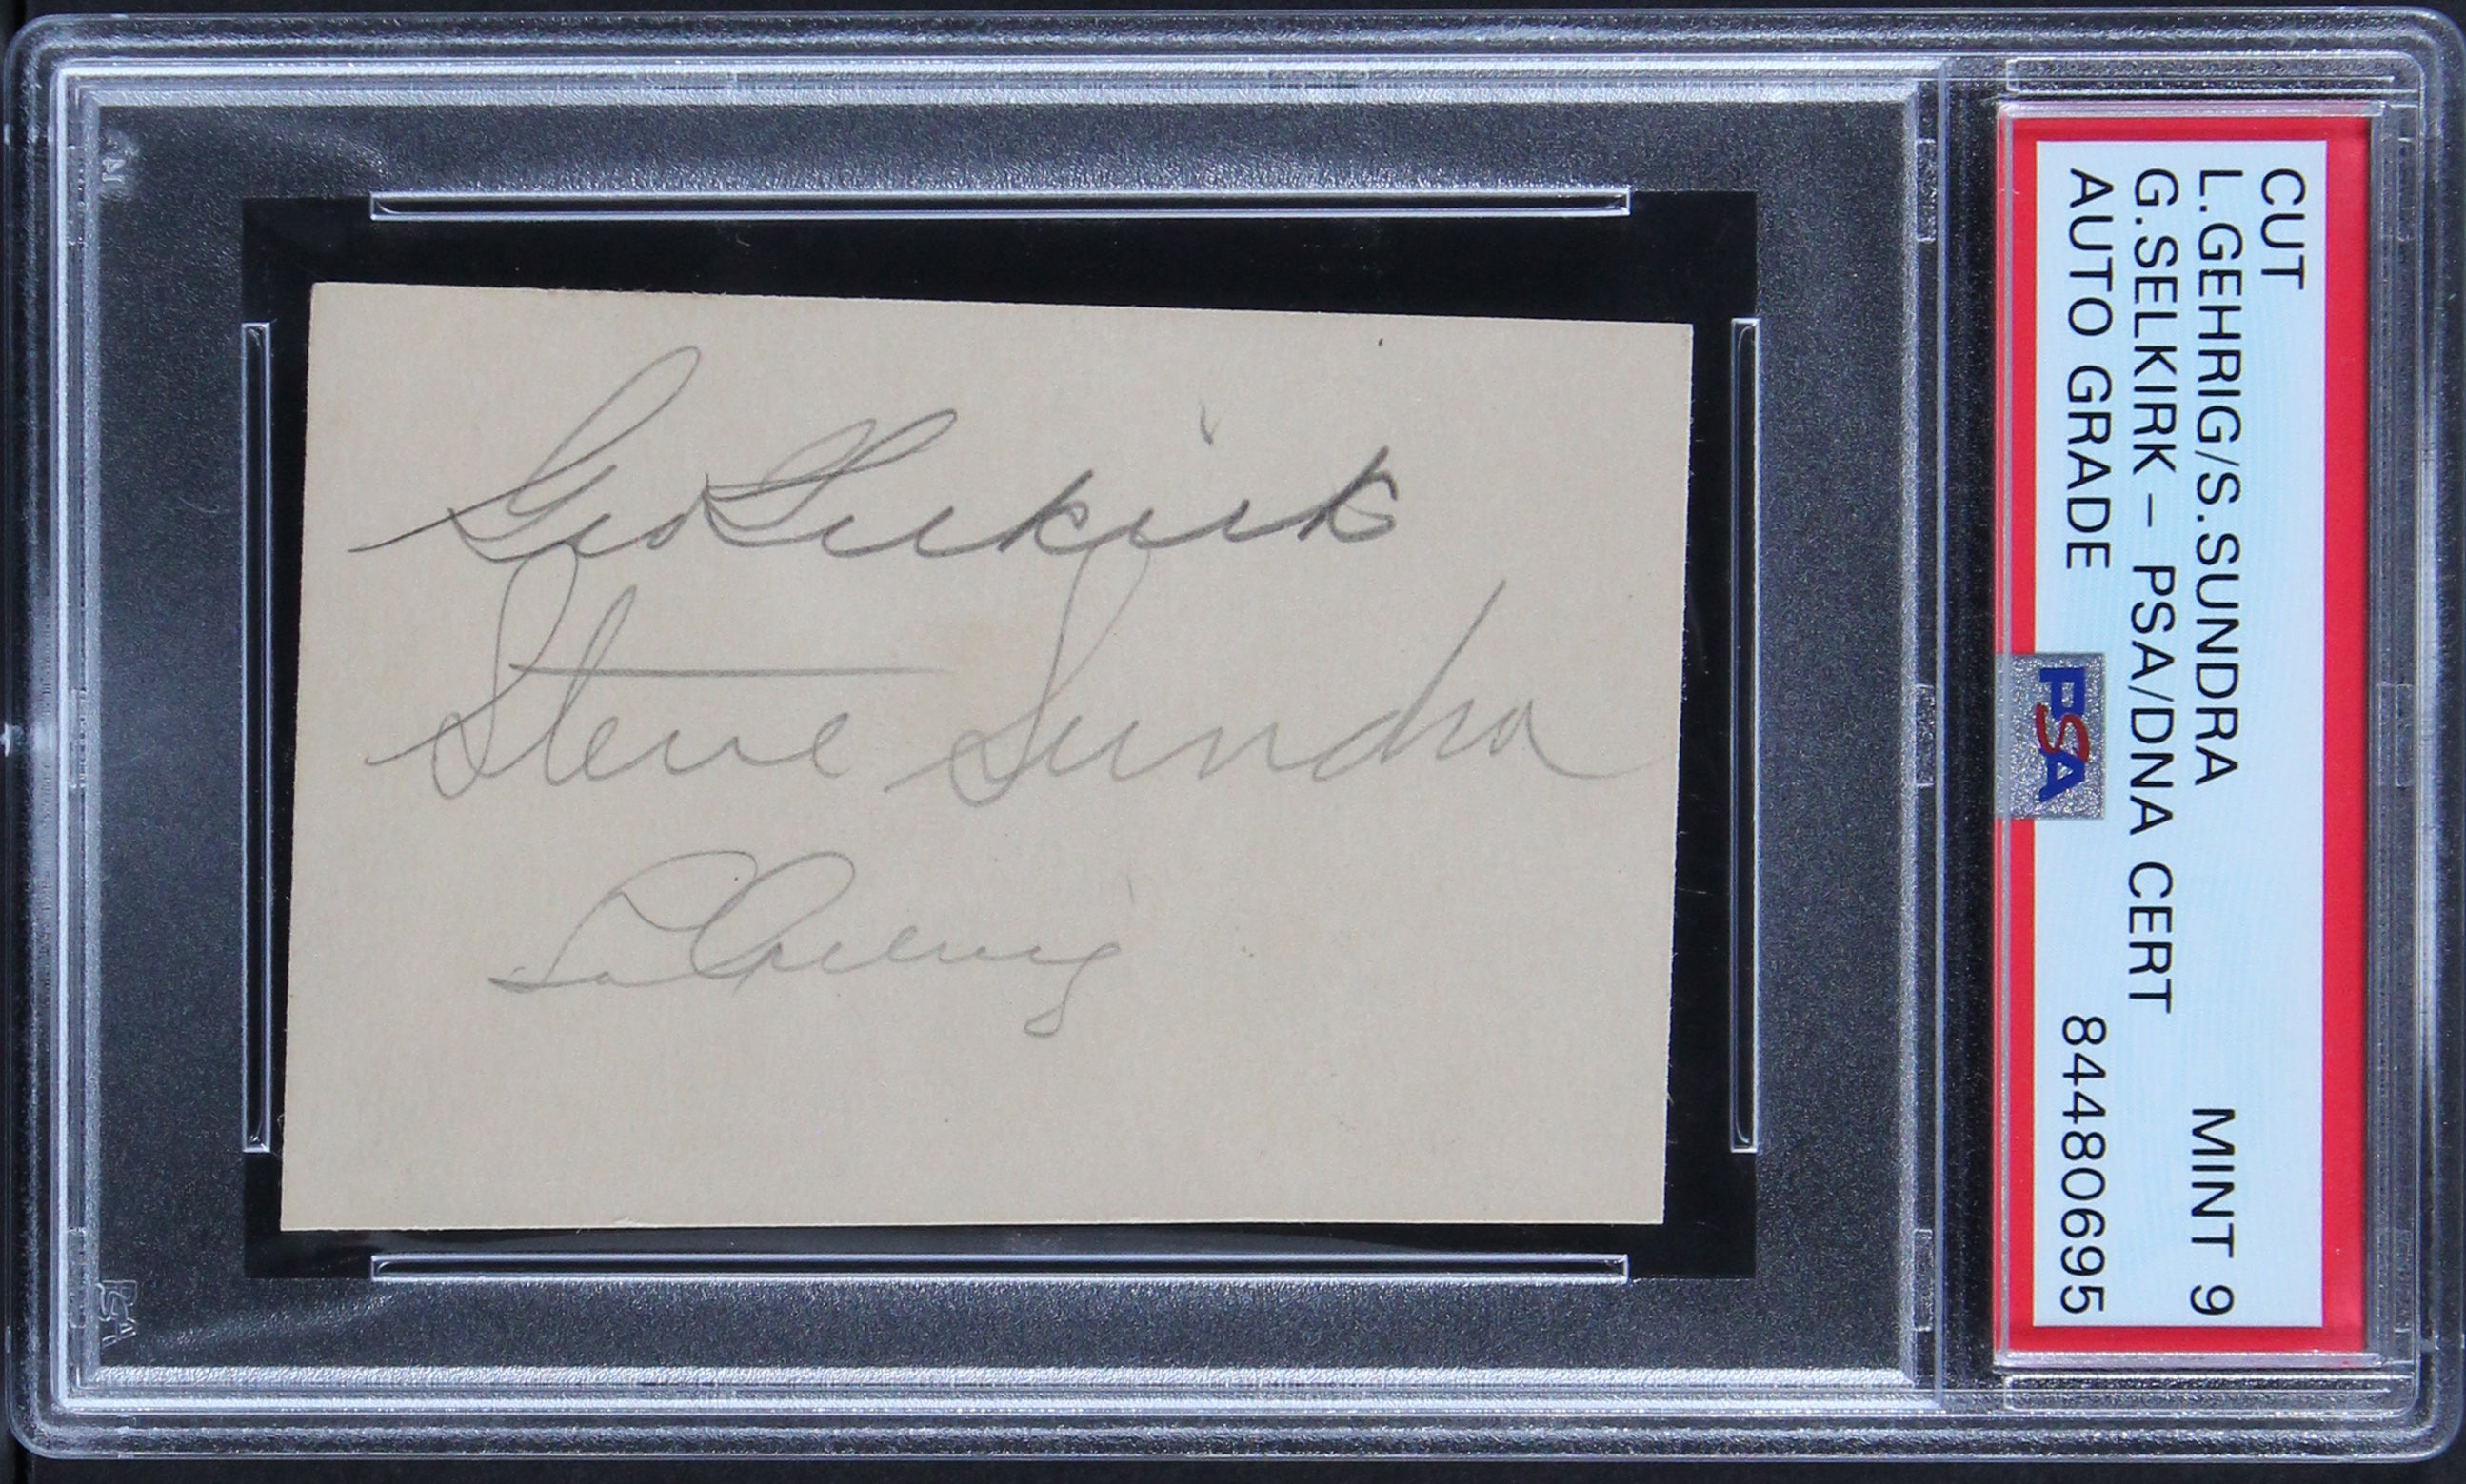 Geo Selkirk
Steve Sundra
Lou Gehrig
CUT
L.GEHRIG/S.SUNDRA MINT 9
G.SELKIRK – PSA/DNA CERT
AUTO GRADE 84480695
PSA